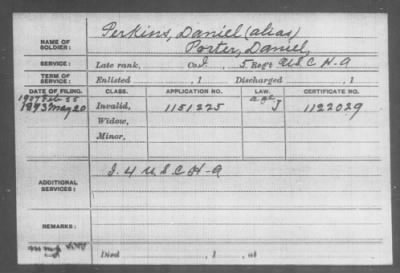 NAME OF SOLDIER: Perkins, Daniel (alias)
Porter, Daniel,
SERVICE: Late rank, Co. I, 5 Regt U.S.C.H.A
TERM OF SERVICE: Enlisted , 1 Discharged , 1
DATE OF FILING. CLASS. APPLICATION NO. LAW. CERTIFICATE NO.
1907 Feb 25 age
1893 May 20 Invalid, 1151225 J 1122029
Widow,
Minor,
ADDITIONAL SERVICES: I. 4 U.S.C.H-A
REMARKS:
Died , 1 , at